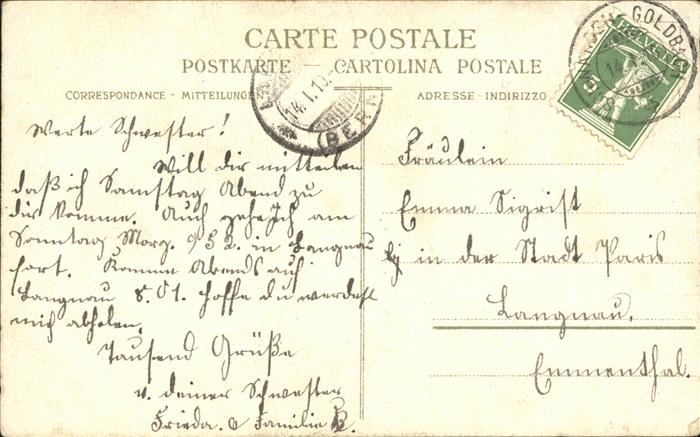 CARTE POSTALE
POSTKARTE — CARTOLINA POSTALE
CORRESPONDANCE - MITTEILUNGEN
ADRESSE - INDIRIZZO
GOLDB
HELVETIA
5
14.I.10
(BERN
Werte Schwester!
Will dir mitteilen
daß ich Samstag Abend zu
dir komme. Auch gehe ich am
Sonntag Morg. 9 52. in Langnau
fort. Komme Abends auf
Langnau 8.01. hoffe du werdest
mich abholen.
Tausend Grüße
v. deiner Schwester
Frieda. & Familie B.
Fräulein
Emma Sigrist
in der Stadt Paris
Langnau.
Emmenthal.